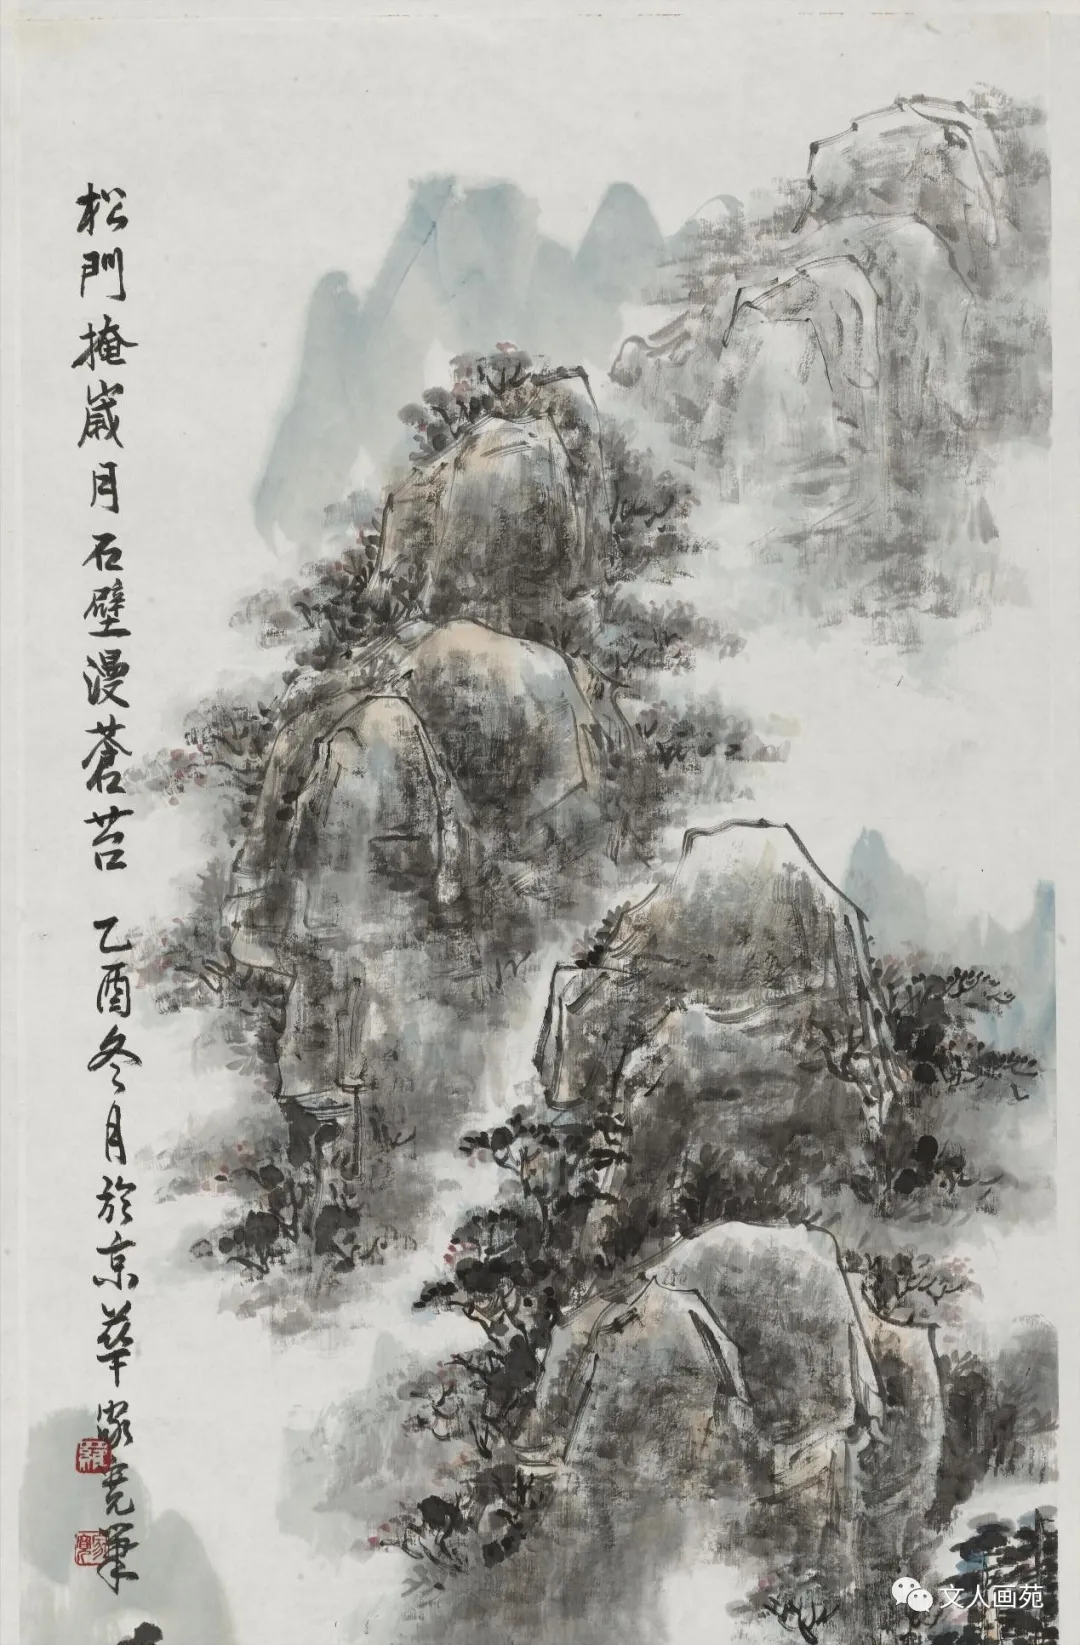 松門掩嵗月石壁漫蒼苔 乙酉冬月於京華家寬筆
文人画苑